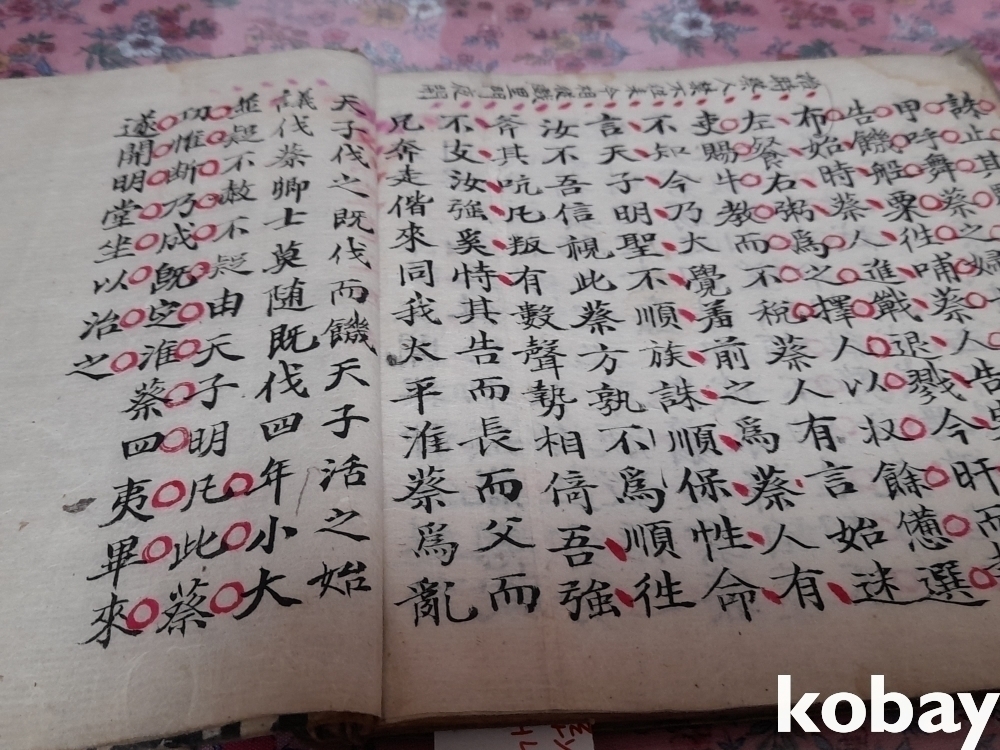 始時蔡人禁不徃来今相從戲里門夜開
誅止其
甲呼舞蔡之婦
告饑船粟徃哺蔡人告
布始時蔡人進戰退戮今旰而
左餐右粥爲之擇人以収餘憊選
吏賜牛教而不税蔡人有言始迷
不知今乃大覺羞前之爲蔡人有
言天子明聖不順族誅順保性命
汝不吾信視此蔡方孰不爲順徃
斧其吭凡叛有數聲勢相倚吾強
不支汝強奚恃其告而長而父而
兄奔走偕來同我太平淮蔡爲亂
天子伐之既伐而饑天子活之始
議伐蔡卿士莫随既伐四年小大
並疑不赦不疑由天子明凡此蔡
功惟断乃成既定淮蔡四夷畢來
遂開明堂坐以治之
kobay